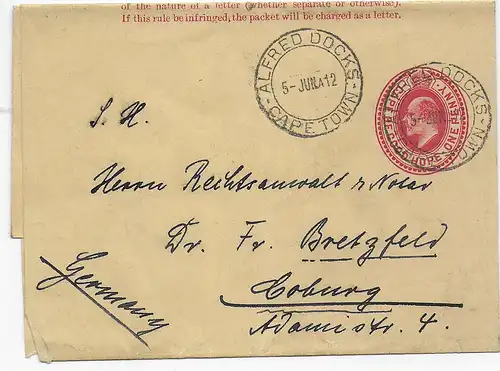 of the nature of a letter (whether separate or otherwise).
If this rule be infringed, the packet will be charged as a letter.
ALFRED DOCKS
5-JUN.12
CAPETOWN
DOCKS
HOPE
ONE PENNY
S. H.
Herrn Rechtsanwalt & Notar
Dr. Fr. Bretzfeld
Coburg
Adamistr. 4.
Germany